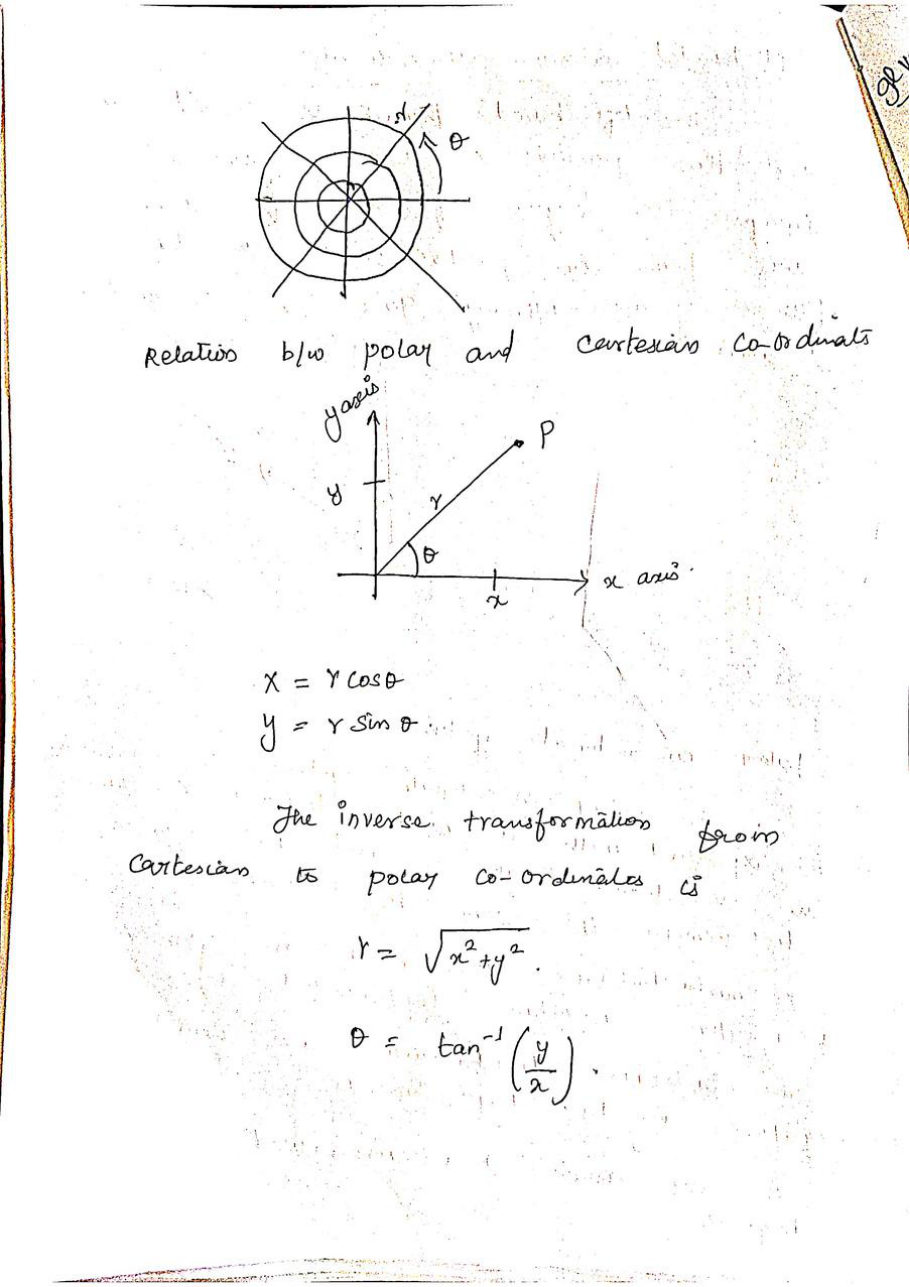 θ
Relation b/w polar and cartesian co-ordinats
y axis
P
y
r
θ
x axis
x
x = r cosθ
y = r sin θ
The inverse transformation from
Cartesian to polar co-ordinates is
r = √x²+y².
θ = tan⁻¹ (y/x).